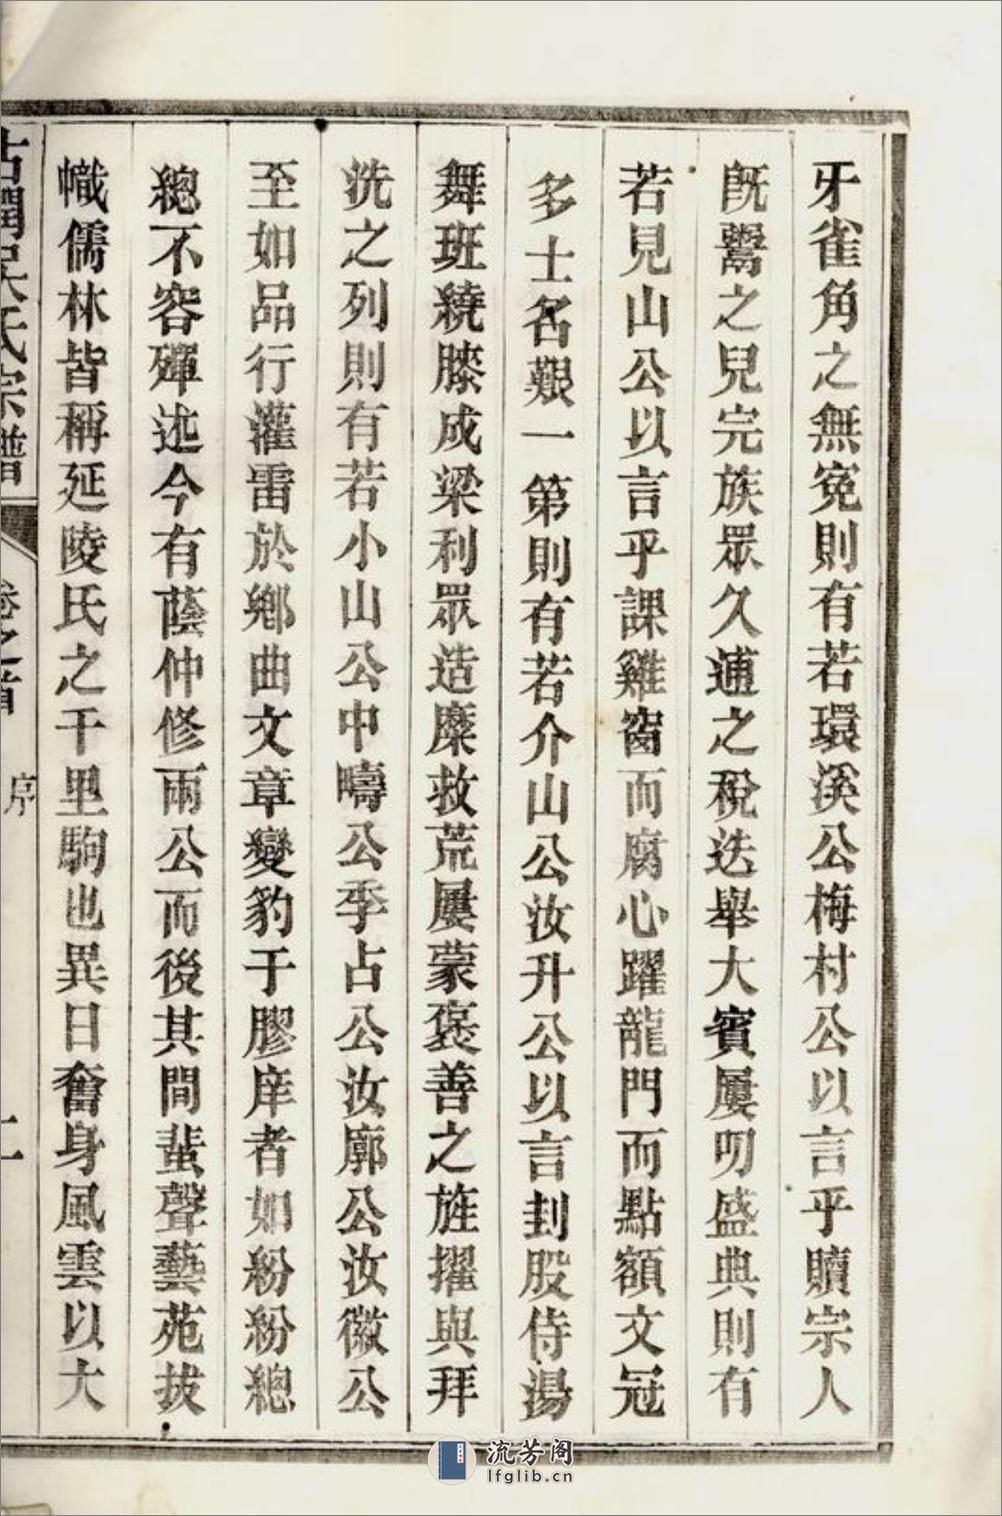 牙雀角之無冤則有若環溪公梅村公以言乎贖宗人
既鬻之兒完族眾久逋之稅迭舉大賓屢叨盛典則有
若見山公以言乎課雞窗而腐心躍龍門而點額文冠
多士名艱一第則有若介山公汝升公以言刲股侍湯
舞班繞膝成梁利眾造糜救荒屢蒙褒善之旌擢與拜
洗之列則有若小山公中疇公季占公汝廓公汝徽公
至如品行灌雷於鄉曲文章變豹于膠庠者如紛紛總
總不容殫述今有蔭仲修兩公而後其間蜚聲藝苑拔
幟儒林皆稱延陵氏之千里駒也異日奮身風雲以大
吳氏宗譜
卷之首
序
流芳阁
lfglib.cn